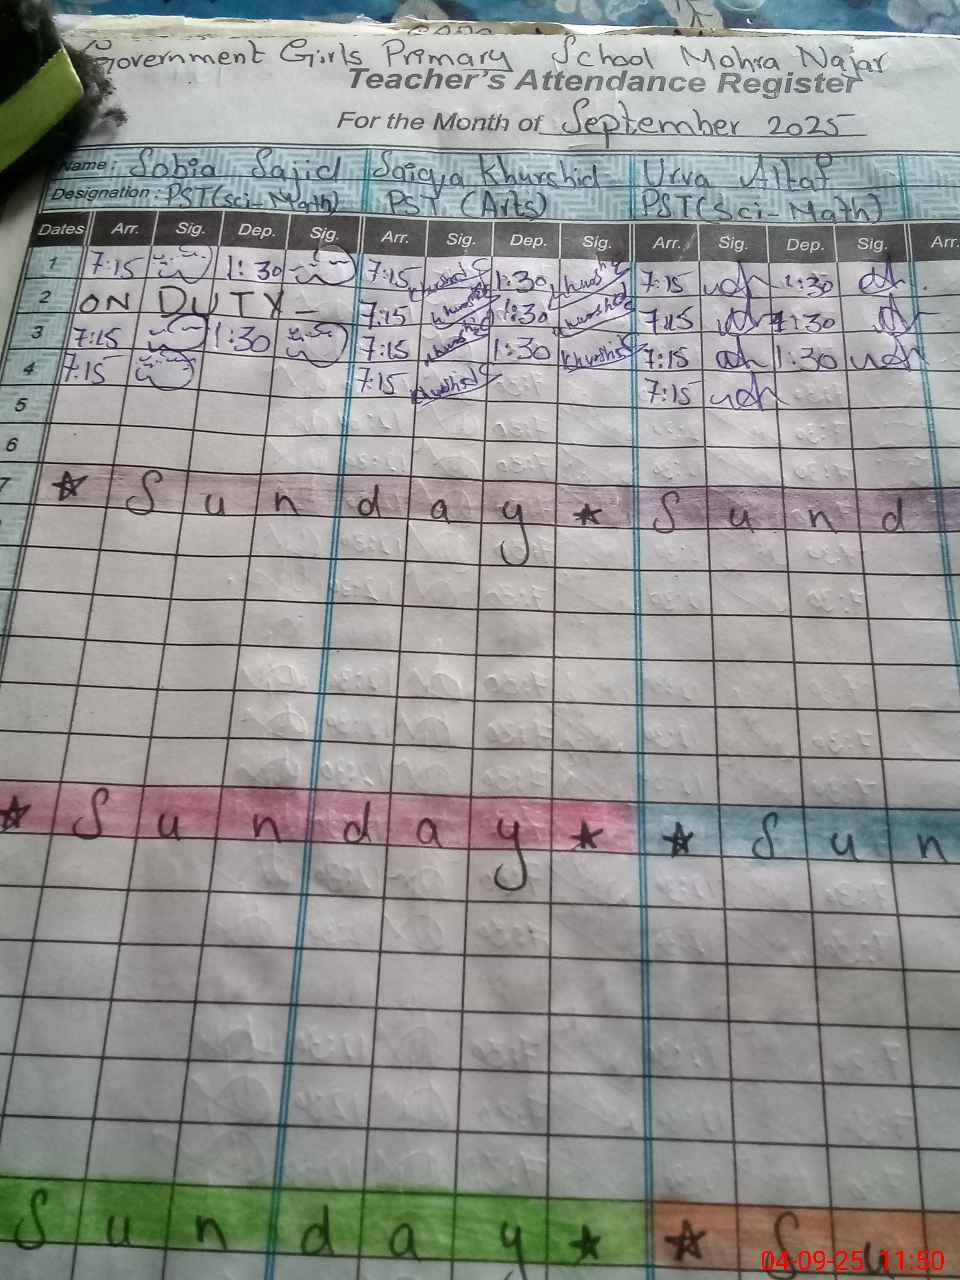 Government Girls Primary School Mohra Najar
Teacher's Attendance Register
For the Month of September 2025
Name: Sobia Sajid Saiqya Khurshid Urva Altaf
Designation: PST(sci-Math) PST (Arts) PST(Sci-Math)
Dates Arr. Sig. Dep. Sig. Arr. Sig. Dep. Sig. Arr. Sig. Dep. Sig. Arr.
1 7:15 1:30 7:15 Khurshid 1:30 Khurshid 7:15 1:30
2 ON DUTY 7:15 Khurshid 1:30 Khurshid 7:15 1:30
3 7:15 1:30 7:15 Khurshid 1:30 Khurshid 7:15 1:30
4 7:15 7:15 Khurshid 7:15
5
6
7 ☆ Sunday ★ Sund
☆ Sunday ★ ★ Sun
Sunday ★ ★ Su
04-09-25 11:50